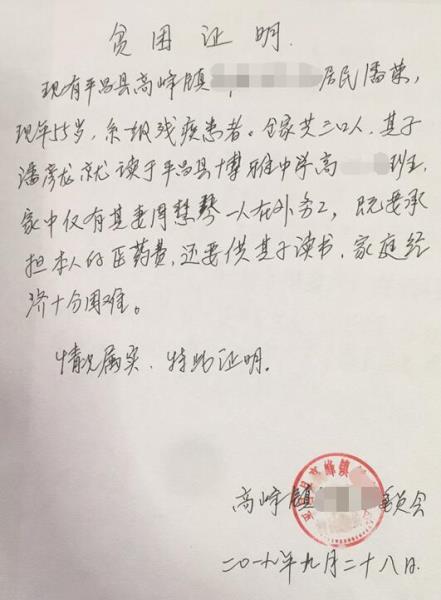 贫困证明
现有平昌县高峰镇 居民潘荣,
现年55岁,系 级残疾患者。全家共三口人,其子
潘彦龙就读于平昌县博雅中学高 班,
家中仅有其妻周慧琴一人在外务工,既要承
担本人的医药费,还要供其子读书,家庭经
济十分困难。
情况属实,特此证明。
高峰镇 委员会
二〇一九年九月二十八日